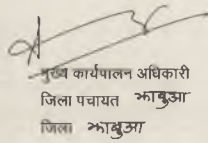 मुख्य कार्यपालन अधिकारी
जिला पंचायत झाबुआ
जिला झाबुआ